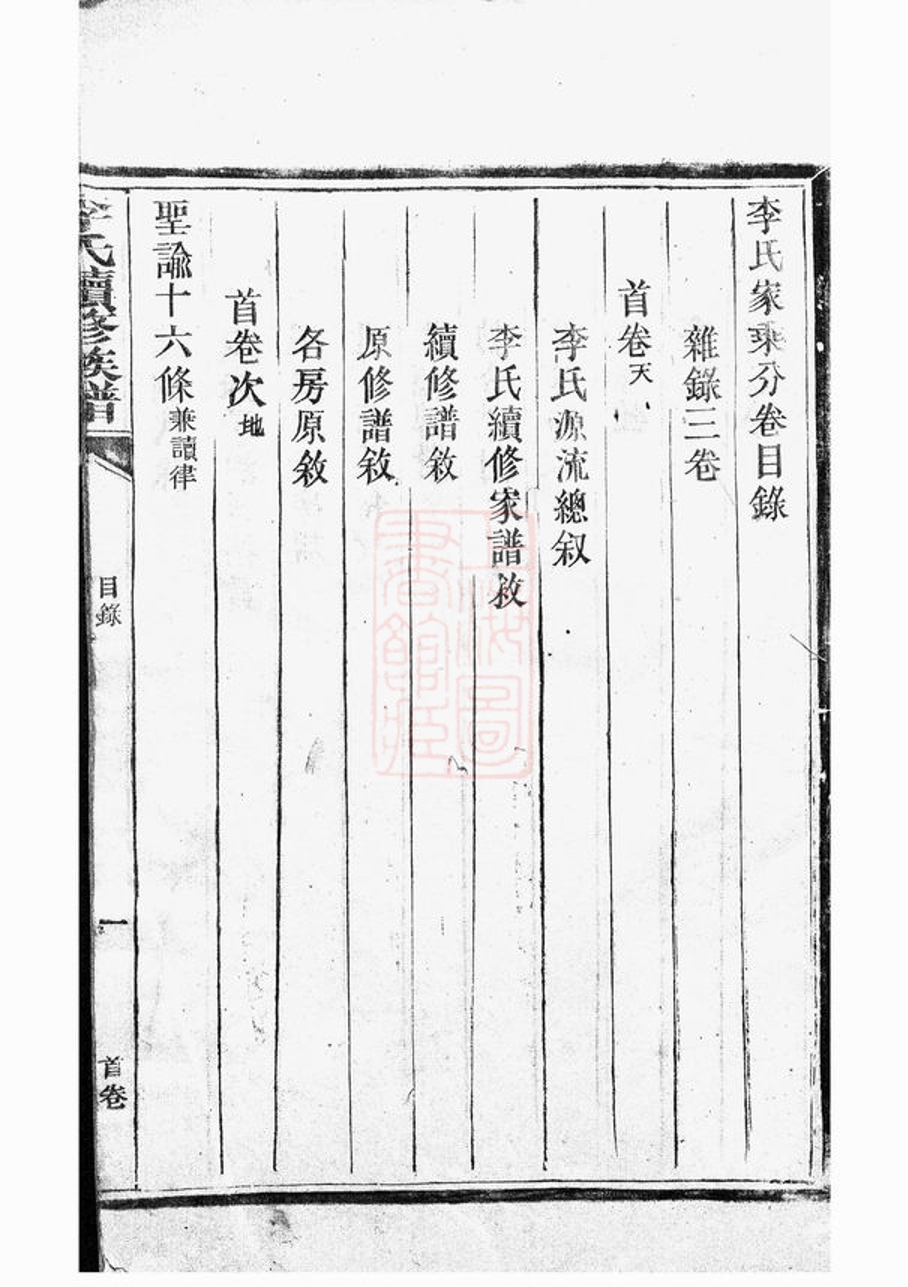 李氏家乘分卷目錄
雜錄三卷
首卷天
李氏源流總叙
李氏續修家譜敘
續修譜敘
原修譜敘
各房原敘
首卷次地
聖諭十六條兼讀律
李氏續修族譜
目錄
一
首卷
上海圖
書館藏